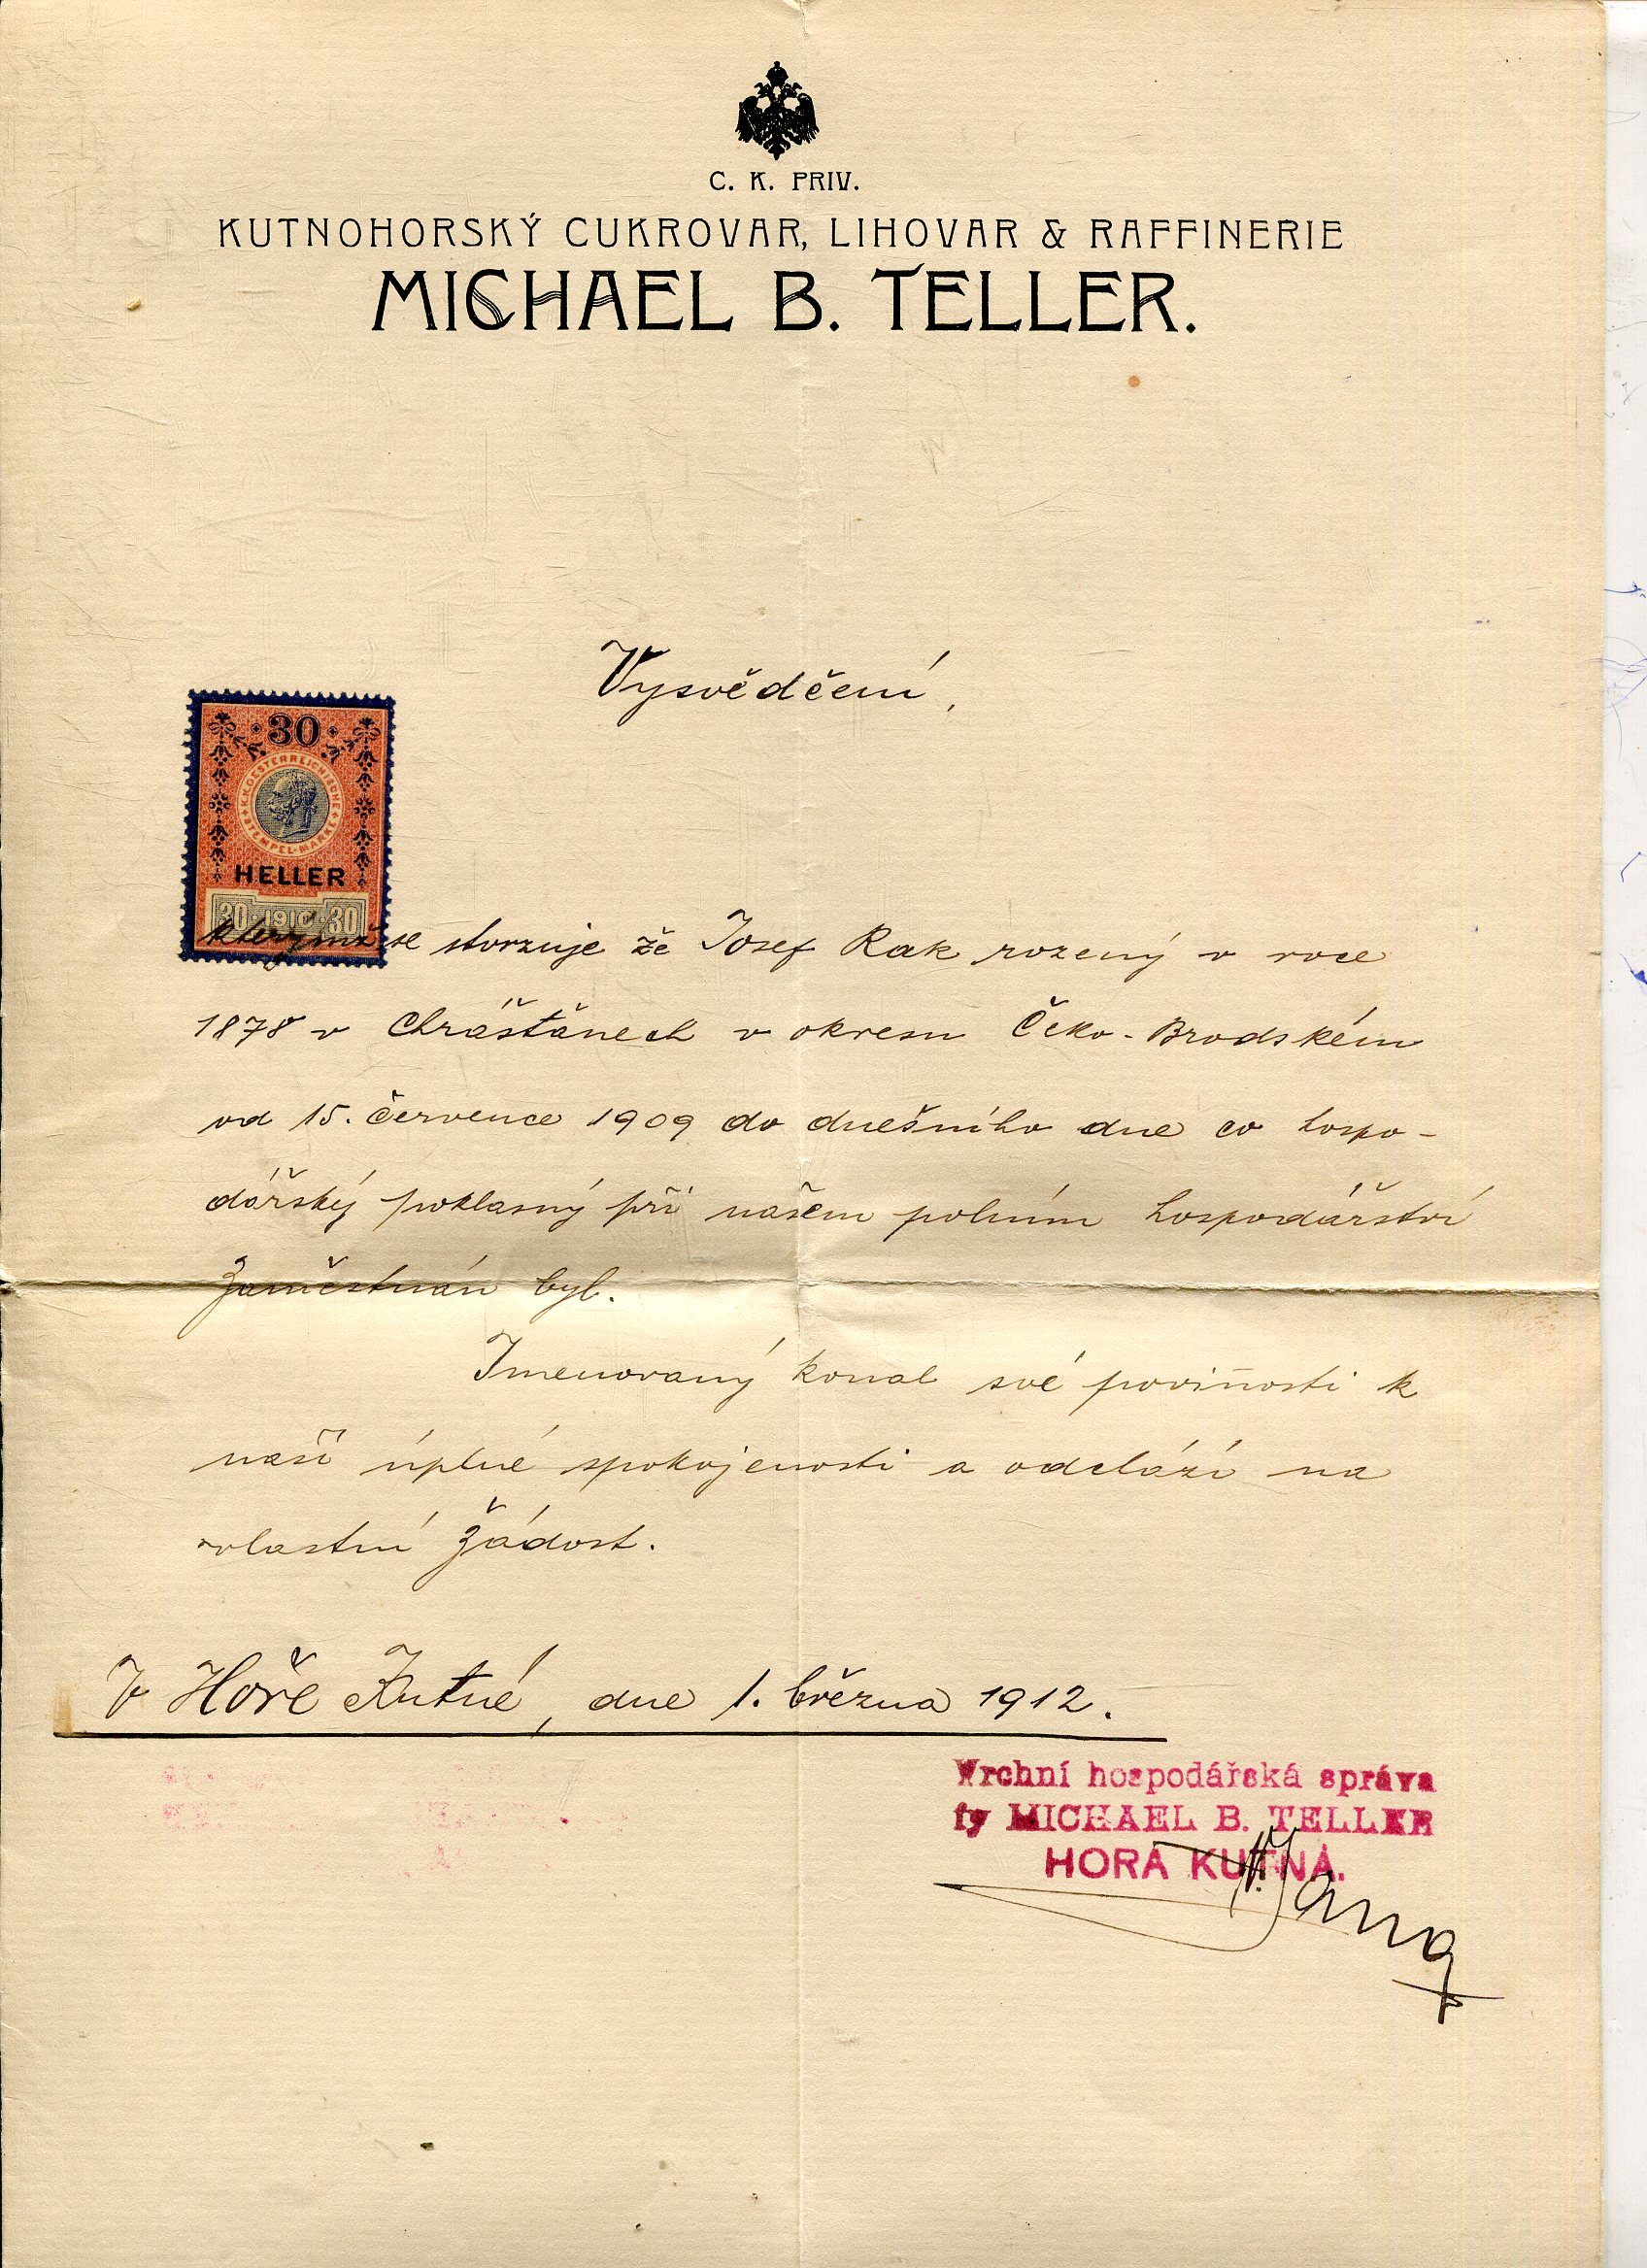 C. K. PRIV.
KUTNOHORSKÝ CUKROVAR, LIHOVAR & RAFFINERIE
MICHAEL B. TELLER.
Vysvědčení,
30
K.K. OESTERREICHISCHE
STEMPEL-MARKE
HELLER
30 1910 30
kterýmž se stvrzuje že Josef Rak rozený v roce
1878 v Chrášťanech v okresu Česko-Brodském
od 15. července 1909 do dnešního dne co hospo-
dářský poklasný při našem polním hospodářství
zaměstnán byl.
Jmenovaný konal své poviňosti k
naší úplné spokojenosti a odchází na
vlastní žádost.
V Hoře Kutné, dne 1. března 1912.
Vrchní hospodářská správa
fy MICHAEL B. TELLER
HORA KUTNÁ.